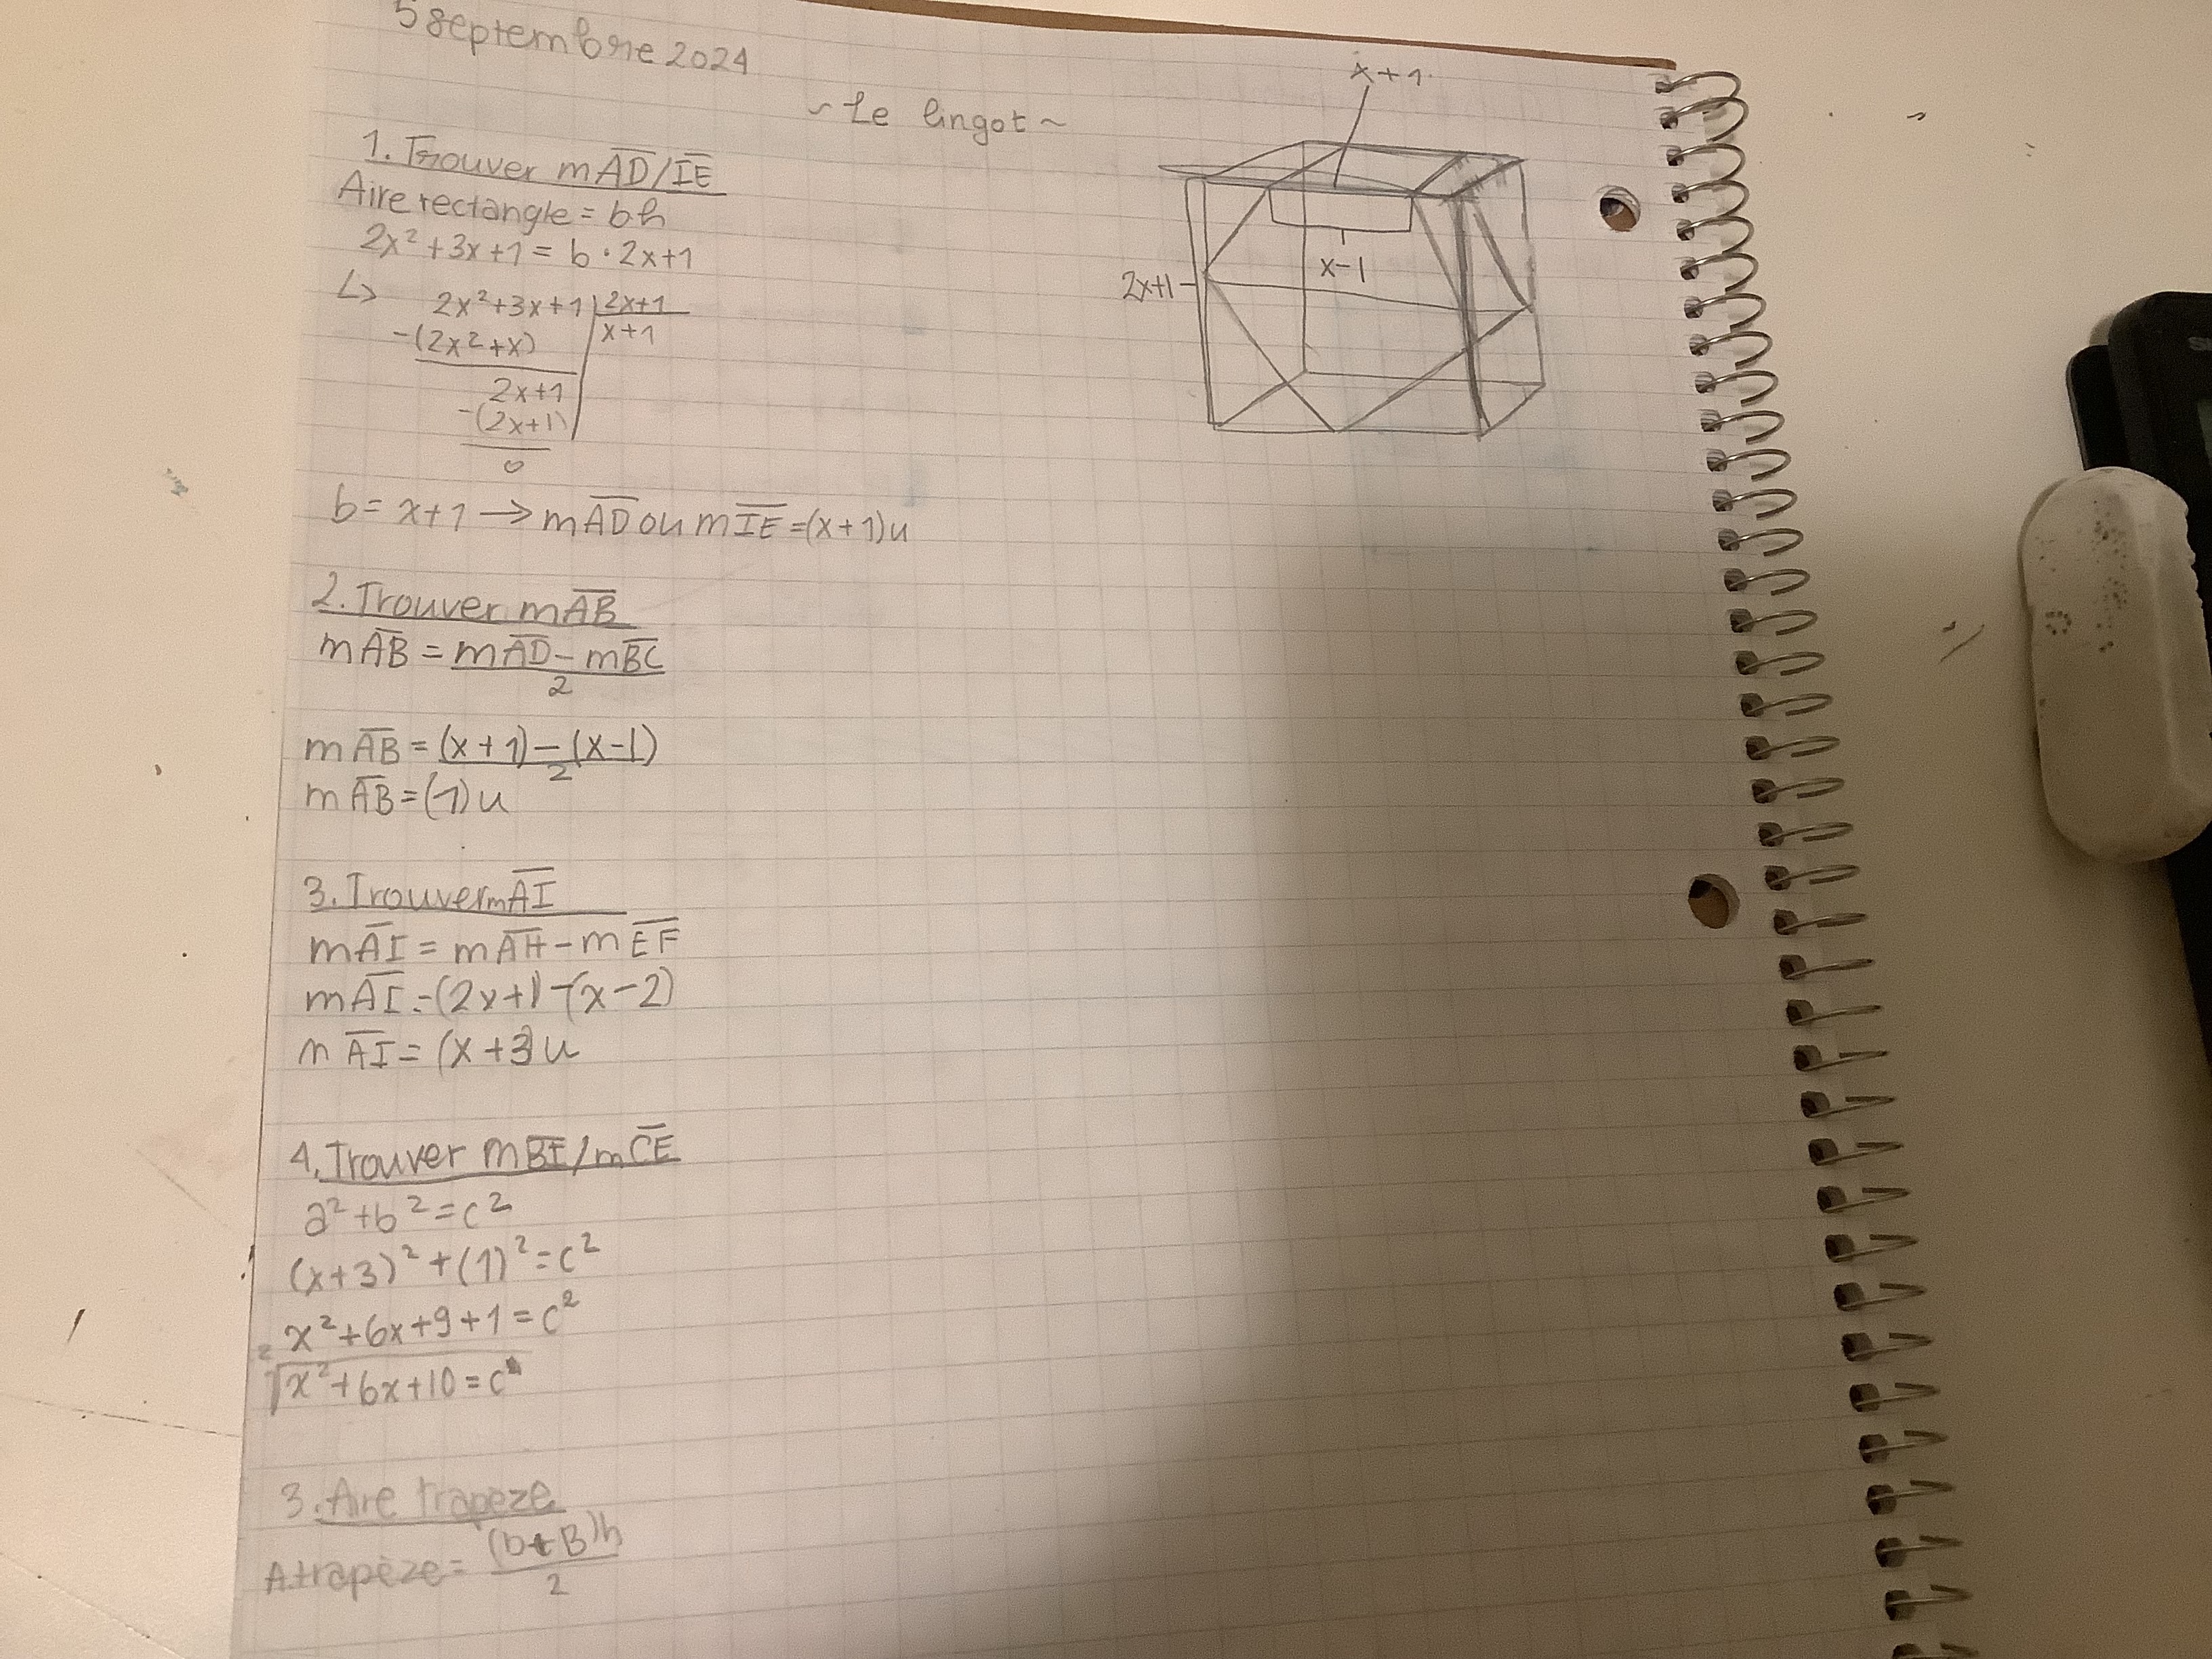 5 septembre 2024
~ Le lingot ~
x+1
2x+1
x-1
1. Trouver mAD/IE
Aire rectangle = bh
2x² + 3x + 1 = b · 2x+1
↳ 2x² + 3x + 1 | 2x+1
-(2x² + x) x+1
2x+1
-(2x+1)
0
b = x+1 → mAD ou mIE = (x+1)u
2. Trouver mAB
mAB = mAD - mBC
2
mAB = (x+1) - (x-1)
2
mAB = (1)u
3. Trouver mAI
mAI = mAH - mEF
mAI = (2x+1) - (x-2)
mAI = (x+3)u
4. Trouver mBI/mCE
a² + b² = c²
(x+3)² + (1)² = c²
x² + 6x + 9 + 1 = c²
²√x² + 6x + 10 = c
3. Aire trapeze
A trapèze = (b+B)h
2